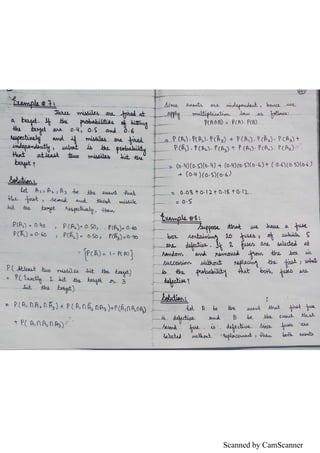 Example # 7:
Three missiles are fired at
a target. If the probabilities of hitting
the target are 0.4, 0.5 and 0.6
respectively and if missiles are fired
independently, what is the probability
that at least two missiles hit the
target?
Solution:
Let A₁, A₂, A₃ be the event that
the first, second and third missile
hit the target respectively, then
P(A₁) = 0.40, P(A₂) = 0.50, P(A₃) = 0.60
P(A̅₁) = 0.60, P(A̅₂) = 0.50, P(A̅₃) = 0.40
∵ [P(A̅) = 1 - P(A)]
P(At least two missiles hit the target)
= P(Exactly 2 hit the target or 3
hit the target)
= P(A₁∩A₂∩A̅₃) + P(A₁∩A̅₂∩A₃) + P(A̅₁∩A₂∩A₃)
+ P(A₁∩A₂∩A₃)
Since events are independent, hence we
apply multiplication law as follows:
P(A∩B) = P(A).P(B)
= P(A₁).P(A₂).P(A̅₃) + P(A₁).P(A̅₂).P(A₃) +
P(A̅₁).P(A₂).P(A₃) + P(A₁).P(A₂).P(A₃)
= (0.4)(0.5)(0.4) + (0.4)(0.5)(0.6) + (0.6)(0.5)(0.6)
+ (0.4)(0.5)(0.6)
= 0.08 + 0.12 + 0.18 + 0.12
= 0.5
Example # 8:
Suppose that we have a fuse
box containing 20 fuses, of which 5
are defective. If 2 fuses are selected at
random and removed from the box in
succession without replacing the first, what
is the probability that both fuses are
defective?
Solution:
Let A be the event that first fuse
is defective and B be the event that
second fuse is defective. Since fuses are
selected without replacement, then both events
Scanned by CamScanner